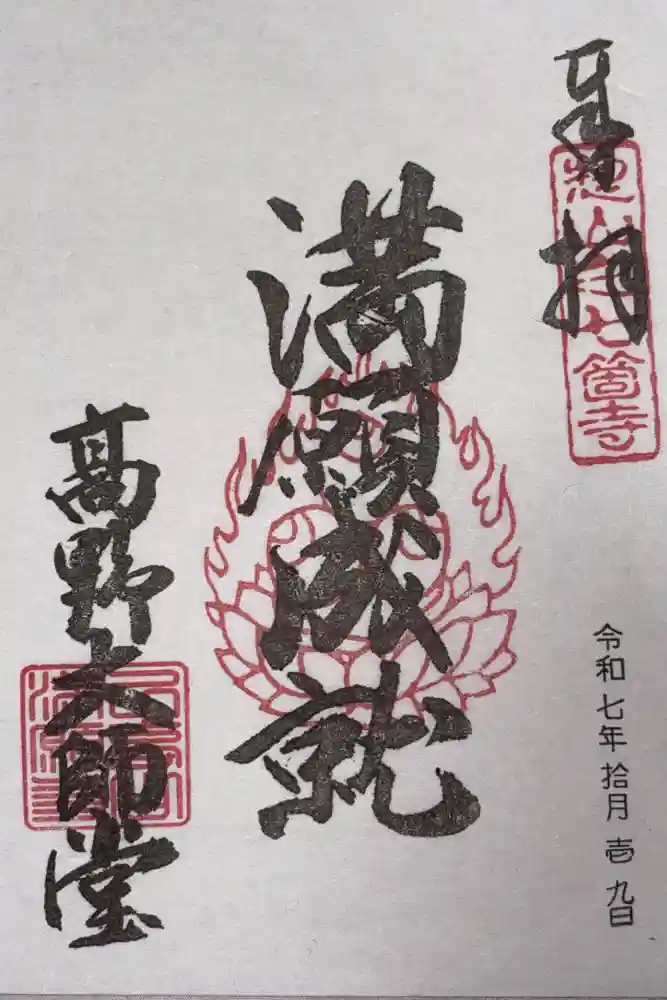 奉拝
七箇寺
令和七年拾月壱九日
満願成就
髙野大師堂